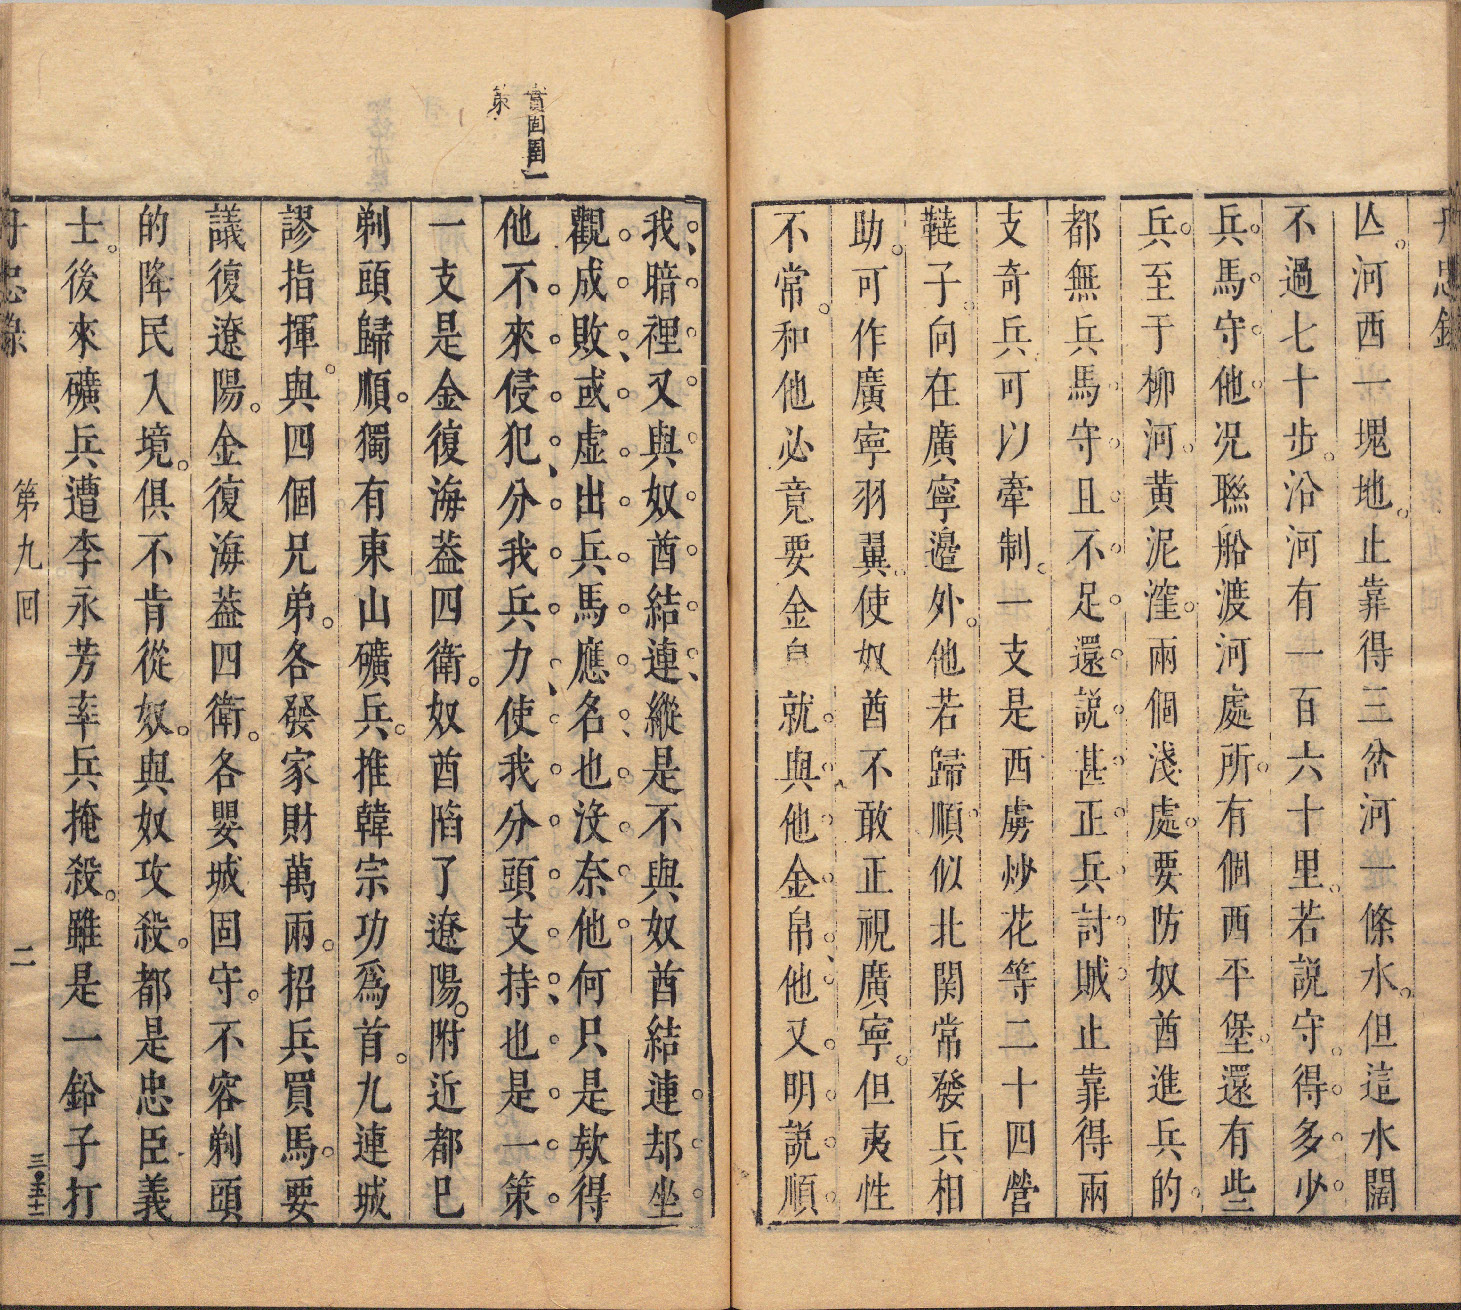 丹忠録
亾河西一塊地止靠得三岔河一條水但這水闊
不過七十步沿河有一百六十里若説守得多少
兵馬守他况聯船渡河處所有個西平堡還有些
兵至于柳河黄泥漥兩個淺處要防奴酋進兵的
都無兵馬守且不足還説甚正兵討賊止靠得兩
支奇兵可以牽制一支是西虜炒花等二十四營
韃子向在廣寧邊外他若歸順似北関常發兵相
助可作廣寧羽翼使奴酋不敢正視廣寧但夷性
不常和他必竟要金帛就與他金帛他又明説順
我暗裡又與奴酋結連縱是不與奴酋結連却坐
觀成敗或虚出兵馬應名也沒奈他何只是欵得
他不來侵犯分我兵力使我分頭支持也是一策
一支是金復海葢四衛奴酋陷了遼陽附近都已
剃頭歸順獨有東山礦兵推韓宗功爲首九連城
謬指揮與四個兄弟各發家財萬兩招兵買馬要
議復遼陽金復海葢四衛各嬰城固守不容剃頭
的降民入境俱不肯從奴與奴攻殺都是忠臣義
士後來礦兵遭李永芳率兵掩殺雖是一鈴子打
丹忠録
第九回
二